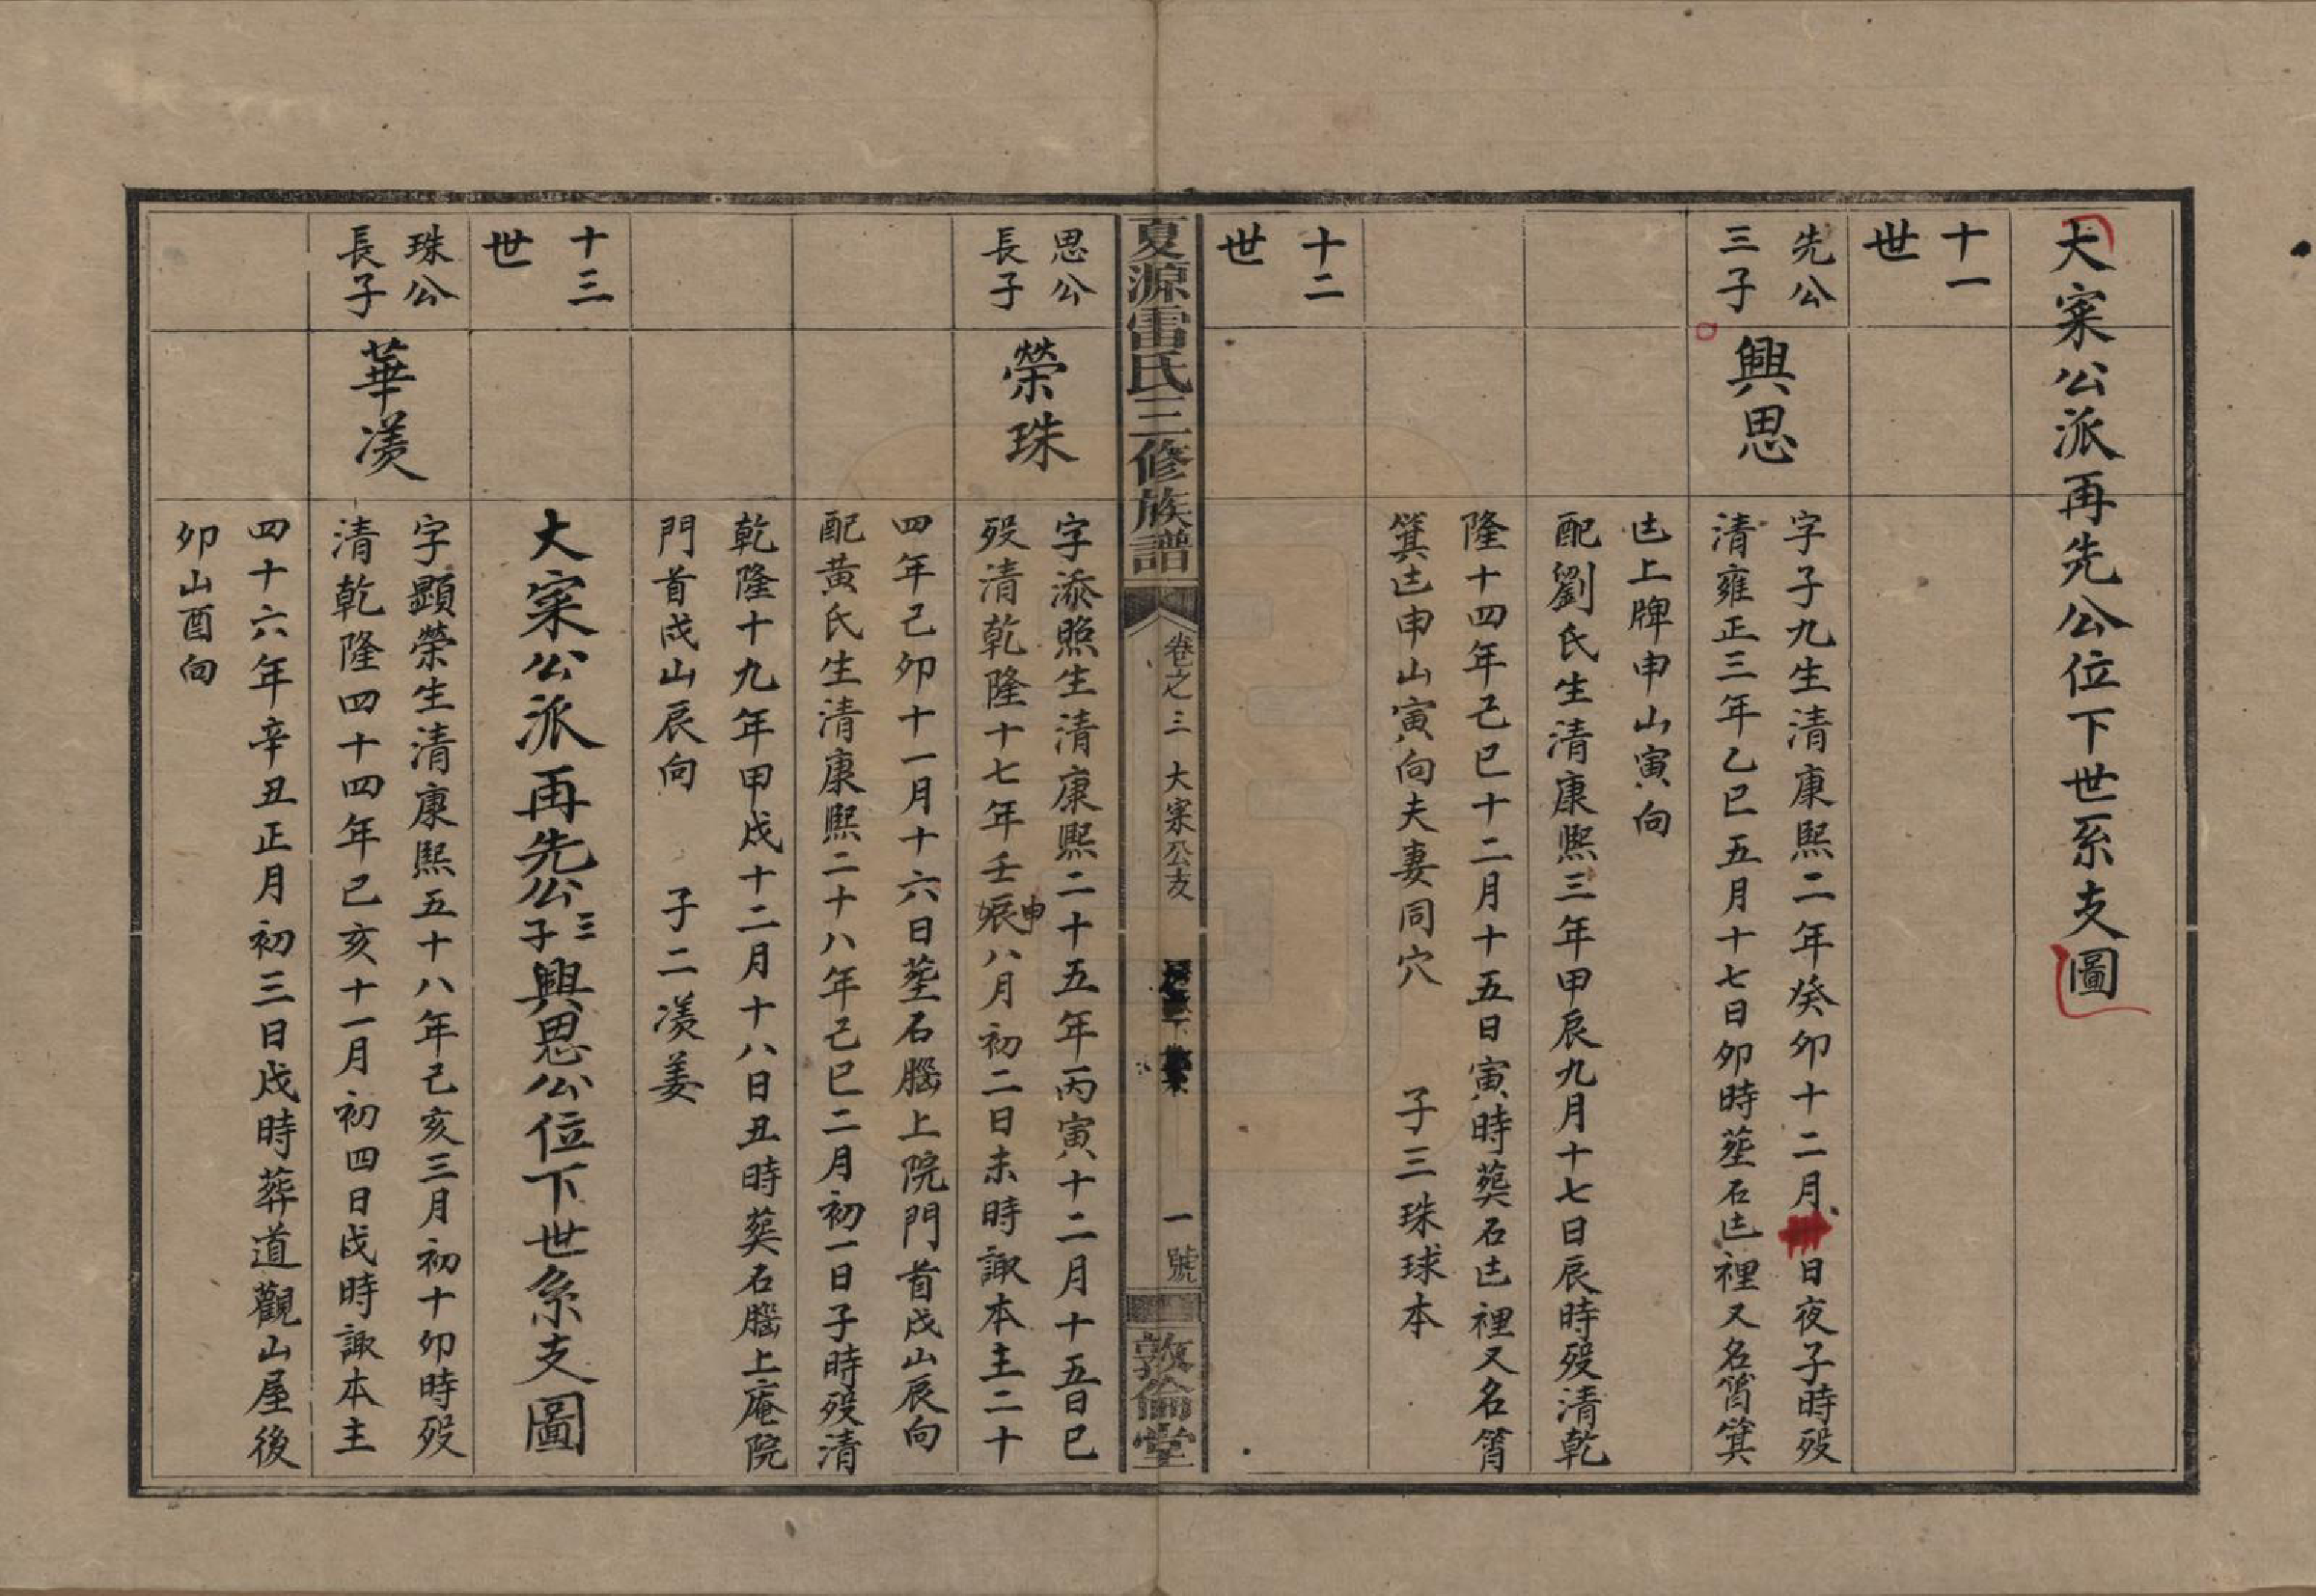 大寀公派再先公位下世系支圖
十一
世
先公
三子
興思
字子九生清康熙二年癸卯十二月日夜子時殁
清雍正三年乙巳五月十七日卯時塟石𠱾裡又名筲箕
𠱾上牌申山寅向
配劉氏生清康熙三年甲辰九月十七日辰時殁清乾
隆十四年己巳十二月十五日寅時葬石𠱾裡又名筲
箕𠱾申山寅向夫妻同穴 子三珠球本
十二
世
夏源雷氏三修族譜
卷之三 大寀公支
一號
敦倫堂
思公
長子
榮珠
字添照生清康熙二十五年丙寅十二月十五日巳
殁清乾隆十七年壬申八月初二日未時諏本主二十
四年己卯十一月十六日塟石𦠆上院門首戌山辰向
配黄氏生清康熙二十八年己巳二月初一日子時殁清
乾隆十九年甲戌十二月十八日丑時葬石𦠆上庵院
門首戌山辰向 子二渼姜
大寀公派再先公三子興思公位下世系支圖
十三
世
珠公
長子
華渼
字顯榮生清康熙五十八年己亥三月初十卯時殁
清乾隆四十四年己亥十一月初四日戌時諏本主
四十六年辛丑正月初三日戌時葬道觀山屋後
卯山酉向